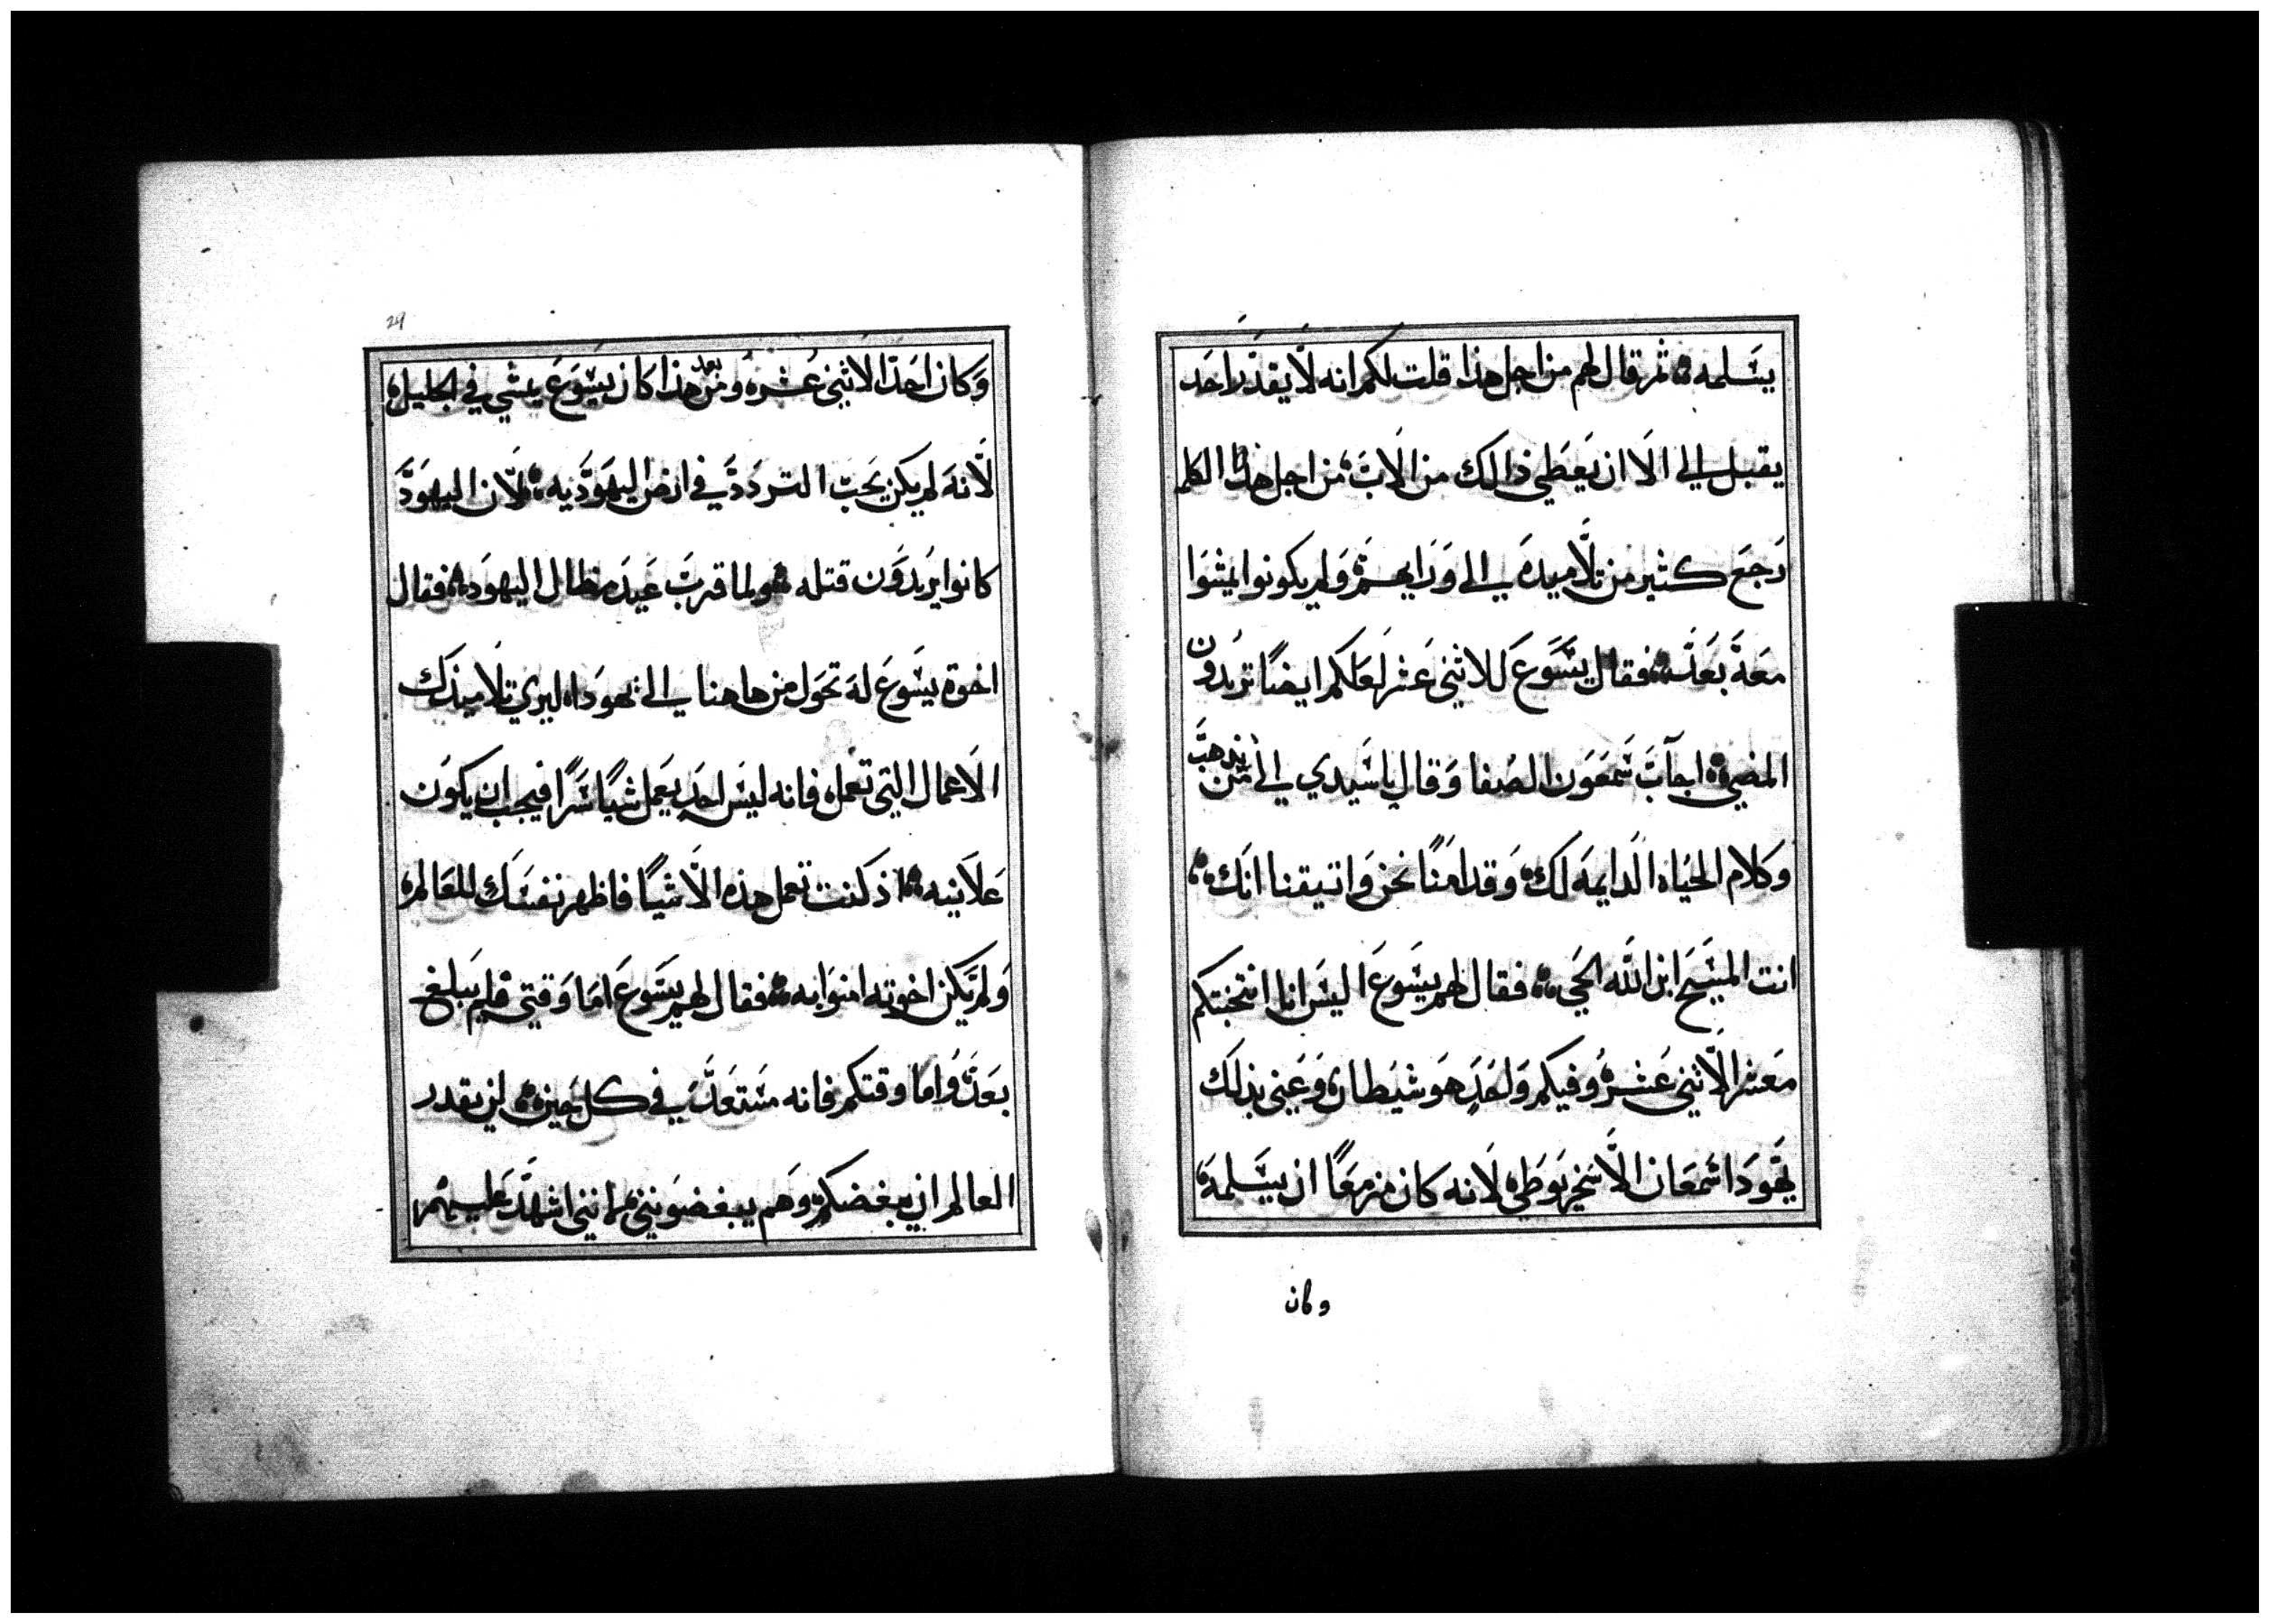 يسلمه ثم قال لهم من اجل هذا قلت لكم انه لا يقدر احد
يقبل الي الا ان يعطي ذالك من الاب من اجل هذا الكلم
رجع كثير من تلاميده الي ورايهم ولم يكونوا يمشوا
معه بعد فقال يسوع للاثني عشر لعلكم ايضًا تريدون
المضي اجاب سمعون الصفا وقال يا سيدي الي من نذهب
وكلام الحياه الدايمه لك وقد امنا نحن واتيقنا انك
انت المسيح ابن الله الحي فقال لهم يسوع اليس انا انتخبتكم
معشر الاثني عشر وفيكم واحد هو شيطان وعني بذلك
يهودا سمعان الاسخريوطي لانه كان مزمعًا ان يسلمه
وكان
29
وكان احد الاثني عشره ومن بعد هذا كان يسوع يمشي في الجليل
لانه لم يكن يحب التردد في ارض اليهوديه لان اليهود
كانوا يريدون قتله ولما قرب عيد مظال اليهود فقال
اخوة يسوع له تحول من هاهنا الي يهودا ليري تلاميذك
الاعمال التي تعمل فانه ليس احد يعمل شيًا سرًا فيجب ان يكون
علانيه اذ كنت تعمل هذه الاشيا فاظهر نفسك للعالم
ولم يكن اخوته امنوا به فقال لهم يسوع اما وقتي فلم يبلغ
بعد واما وقتكم فانه مستعد في كل حين لن يقدر
العالم ان يبغضكم وهم يبغضونني لانني اشهد عليهم